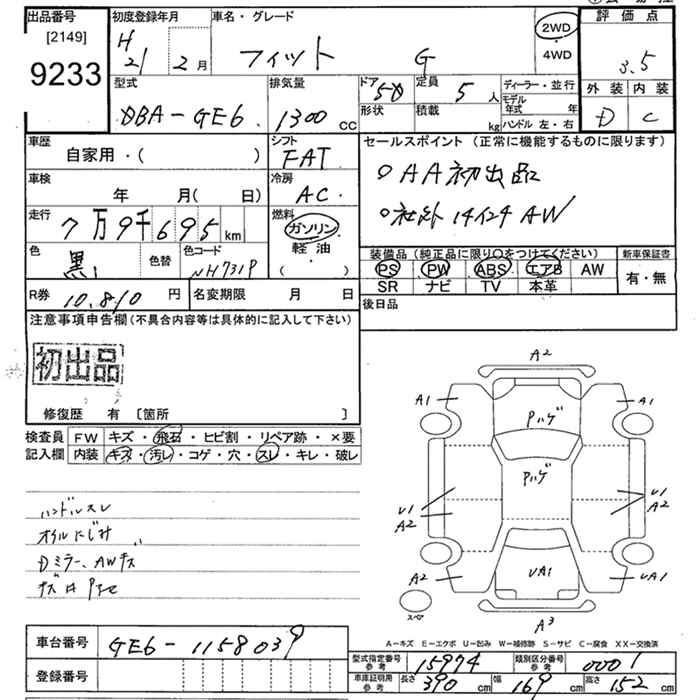 出品番号
[2149]
9233
初度登録年月
H21 2月
車名・グレード
フィット G
2WD
4WD
評価点
3.5
外装 内装
D C
型式
DBA-GE6
排気量
1300 cc
ドア
5D
形状
定員
5人
積載
kg
ディーラー・並行
モデル年式 年
ハンドル 左・右
車歴
自家用・( )
シフト
FAT
車検
年 月( 日)
冷房
AC
走行
7万9千695 km
燃料
ガソリン
軽油
( )
色
黒
色替
色コード
NH731P
セールスポイント (正常に機能するものに限ります)
○AA初出品
○社外14インチAW
装備品 (純正品に限り○をつけてください)
PS PW ABS エアB AW
SR ナビ TV 本革
新車保証書
有・無
R券 10,810円
名変期限 月 日
後日品
注意事項申告欄 (不具合内容等は具体的に記入して下さい)
初出品
修復歴 有 [箇所 ]
検査員
記入欄
FW キズ・飛石・ヒビ割・リペア跡・×要
内装 キズ・汚レ・コゲ・穴・スレ・キレ・破レ
ハンドルスレ
オイルにじみ
Dミラー、AWキズ
A2
A1
A1
Pハゲ
Pハゲ
U1
A2
U1
A2
A2
UA1
UA1
スペア
A3
A=キズ E=エクボ U=凹み W=補修跡 S=サビ C=腐食 XX=交換済
車台番号
GE6-1158039
登録番号
型式指定番号
参考
15974
類別区分番号
参考
0001
車庫証明用
参考
長さ 390 cm
幅 169 cm
高さ 152 cm